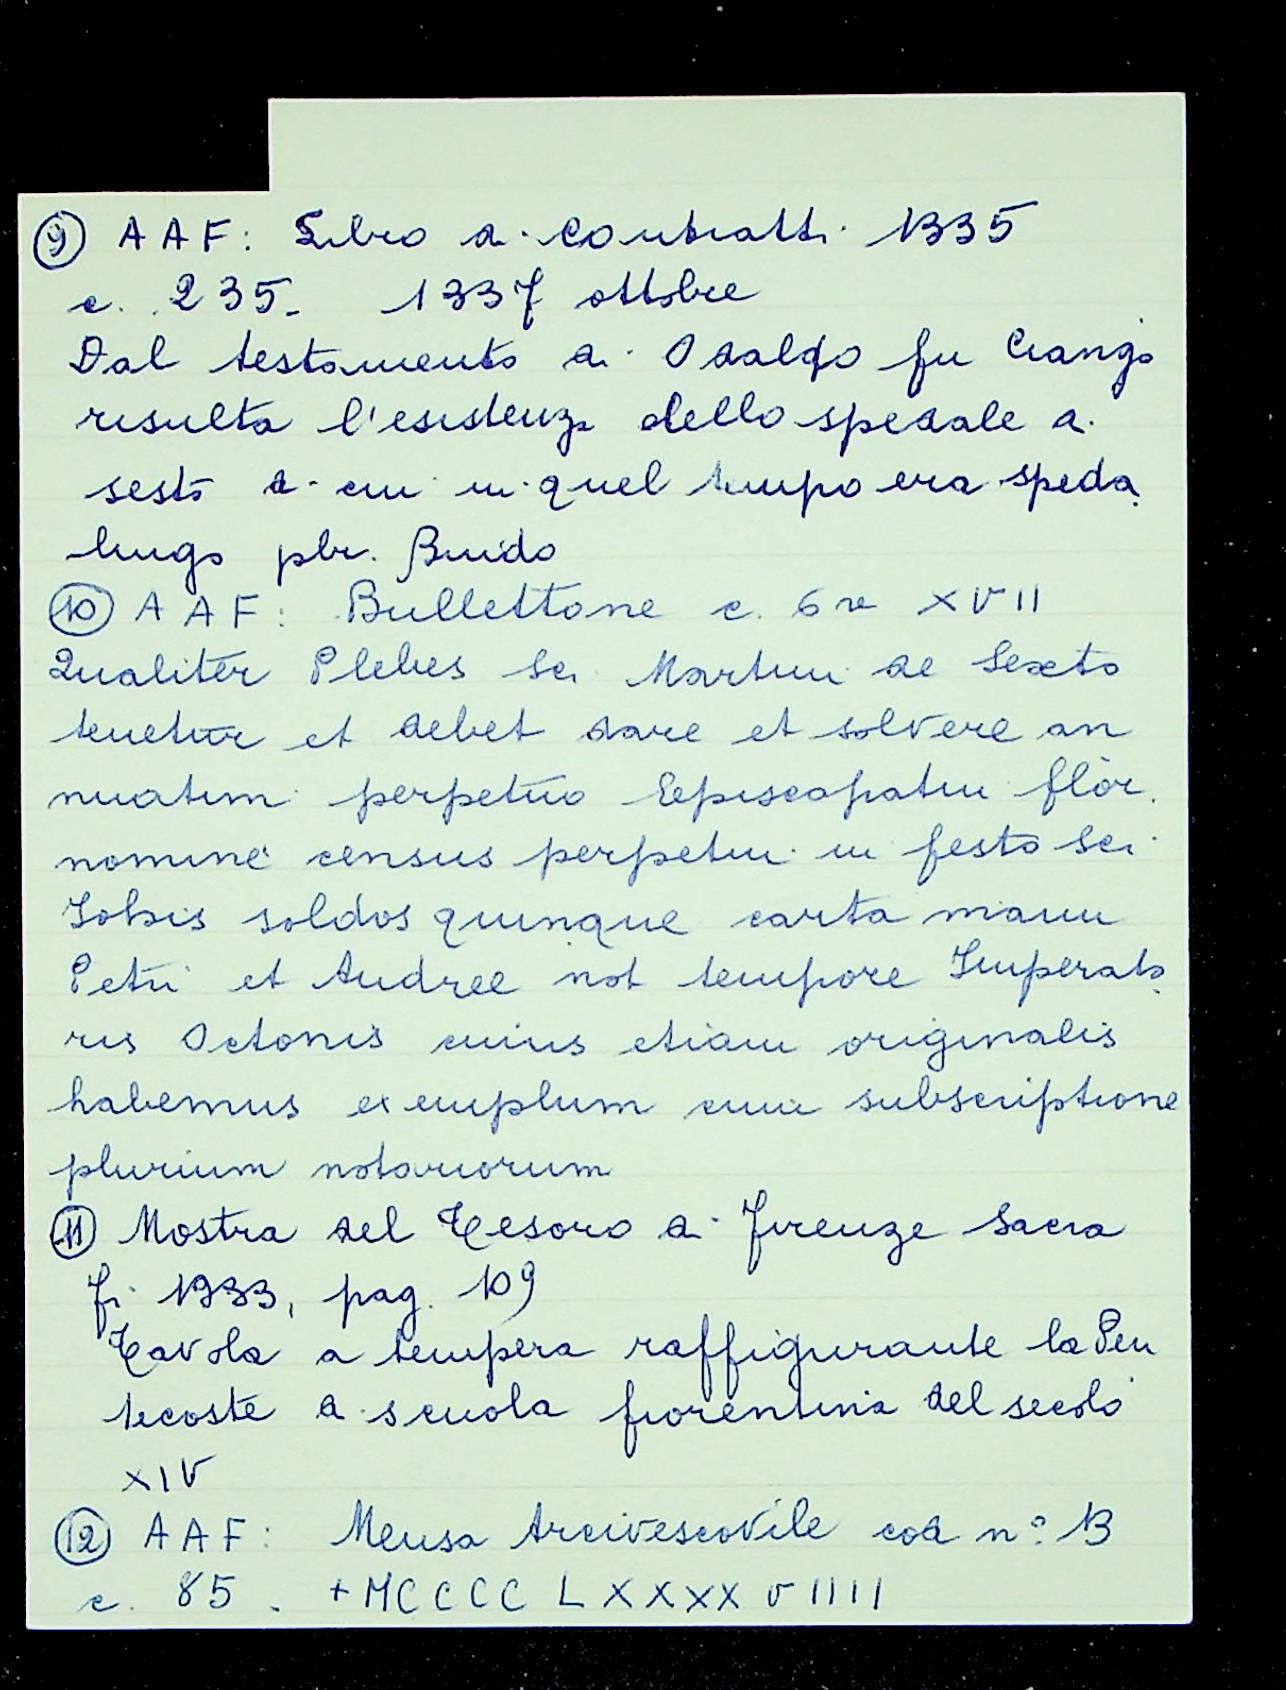 ⑨ AAF: Libro di contratti 1335
c. 235. 1337 ottobre
Dal testamento di Odaldo fu Ciango
risulta l'esistenza dello spedale di
sesto di cui in quel tempo era speda
lingo pbr. Buido
⑩ AAF: Bullettone c. 6 v XVII
Qualiter Plebes Sci Martini de Sexto
tenetur et debet dare et solvere an
nuatim perpetuo Episcopatui flor.
nomine census perpetui in festo Sci
Johis soldos quinque carta manu
Petri et Andree not tempore Imperato
ris Octonis cuius etiam originalis
habemus exemplum cum subscriptione
plurium notariorum
⑪ Mostra del Tesoro di Firenze Sacra
Fi 1933, pag. 109
Tavola a tempera raffigurante la Pen
tecoste di scuola fiorentina del secolo
XIV
⑫ AAF: Mensa Arcivescovile cod n° 13
c. 85. +MCCCC LXXXX VIIII